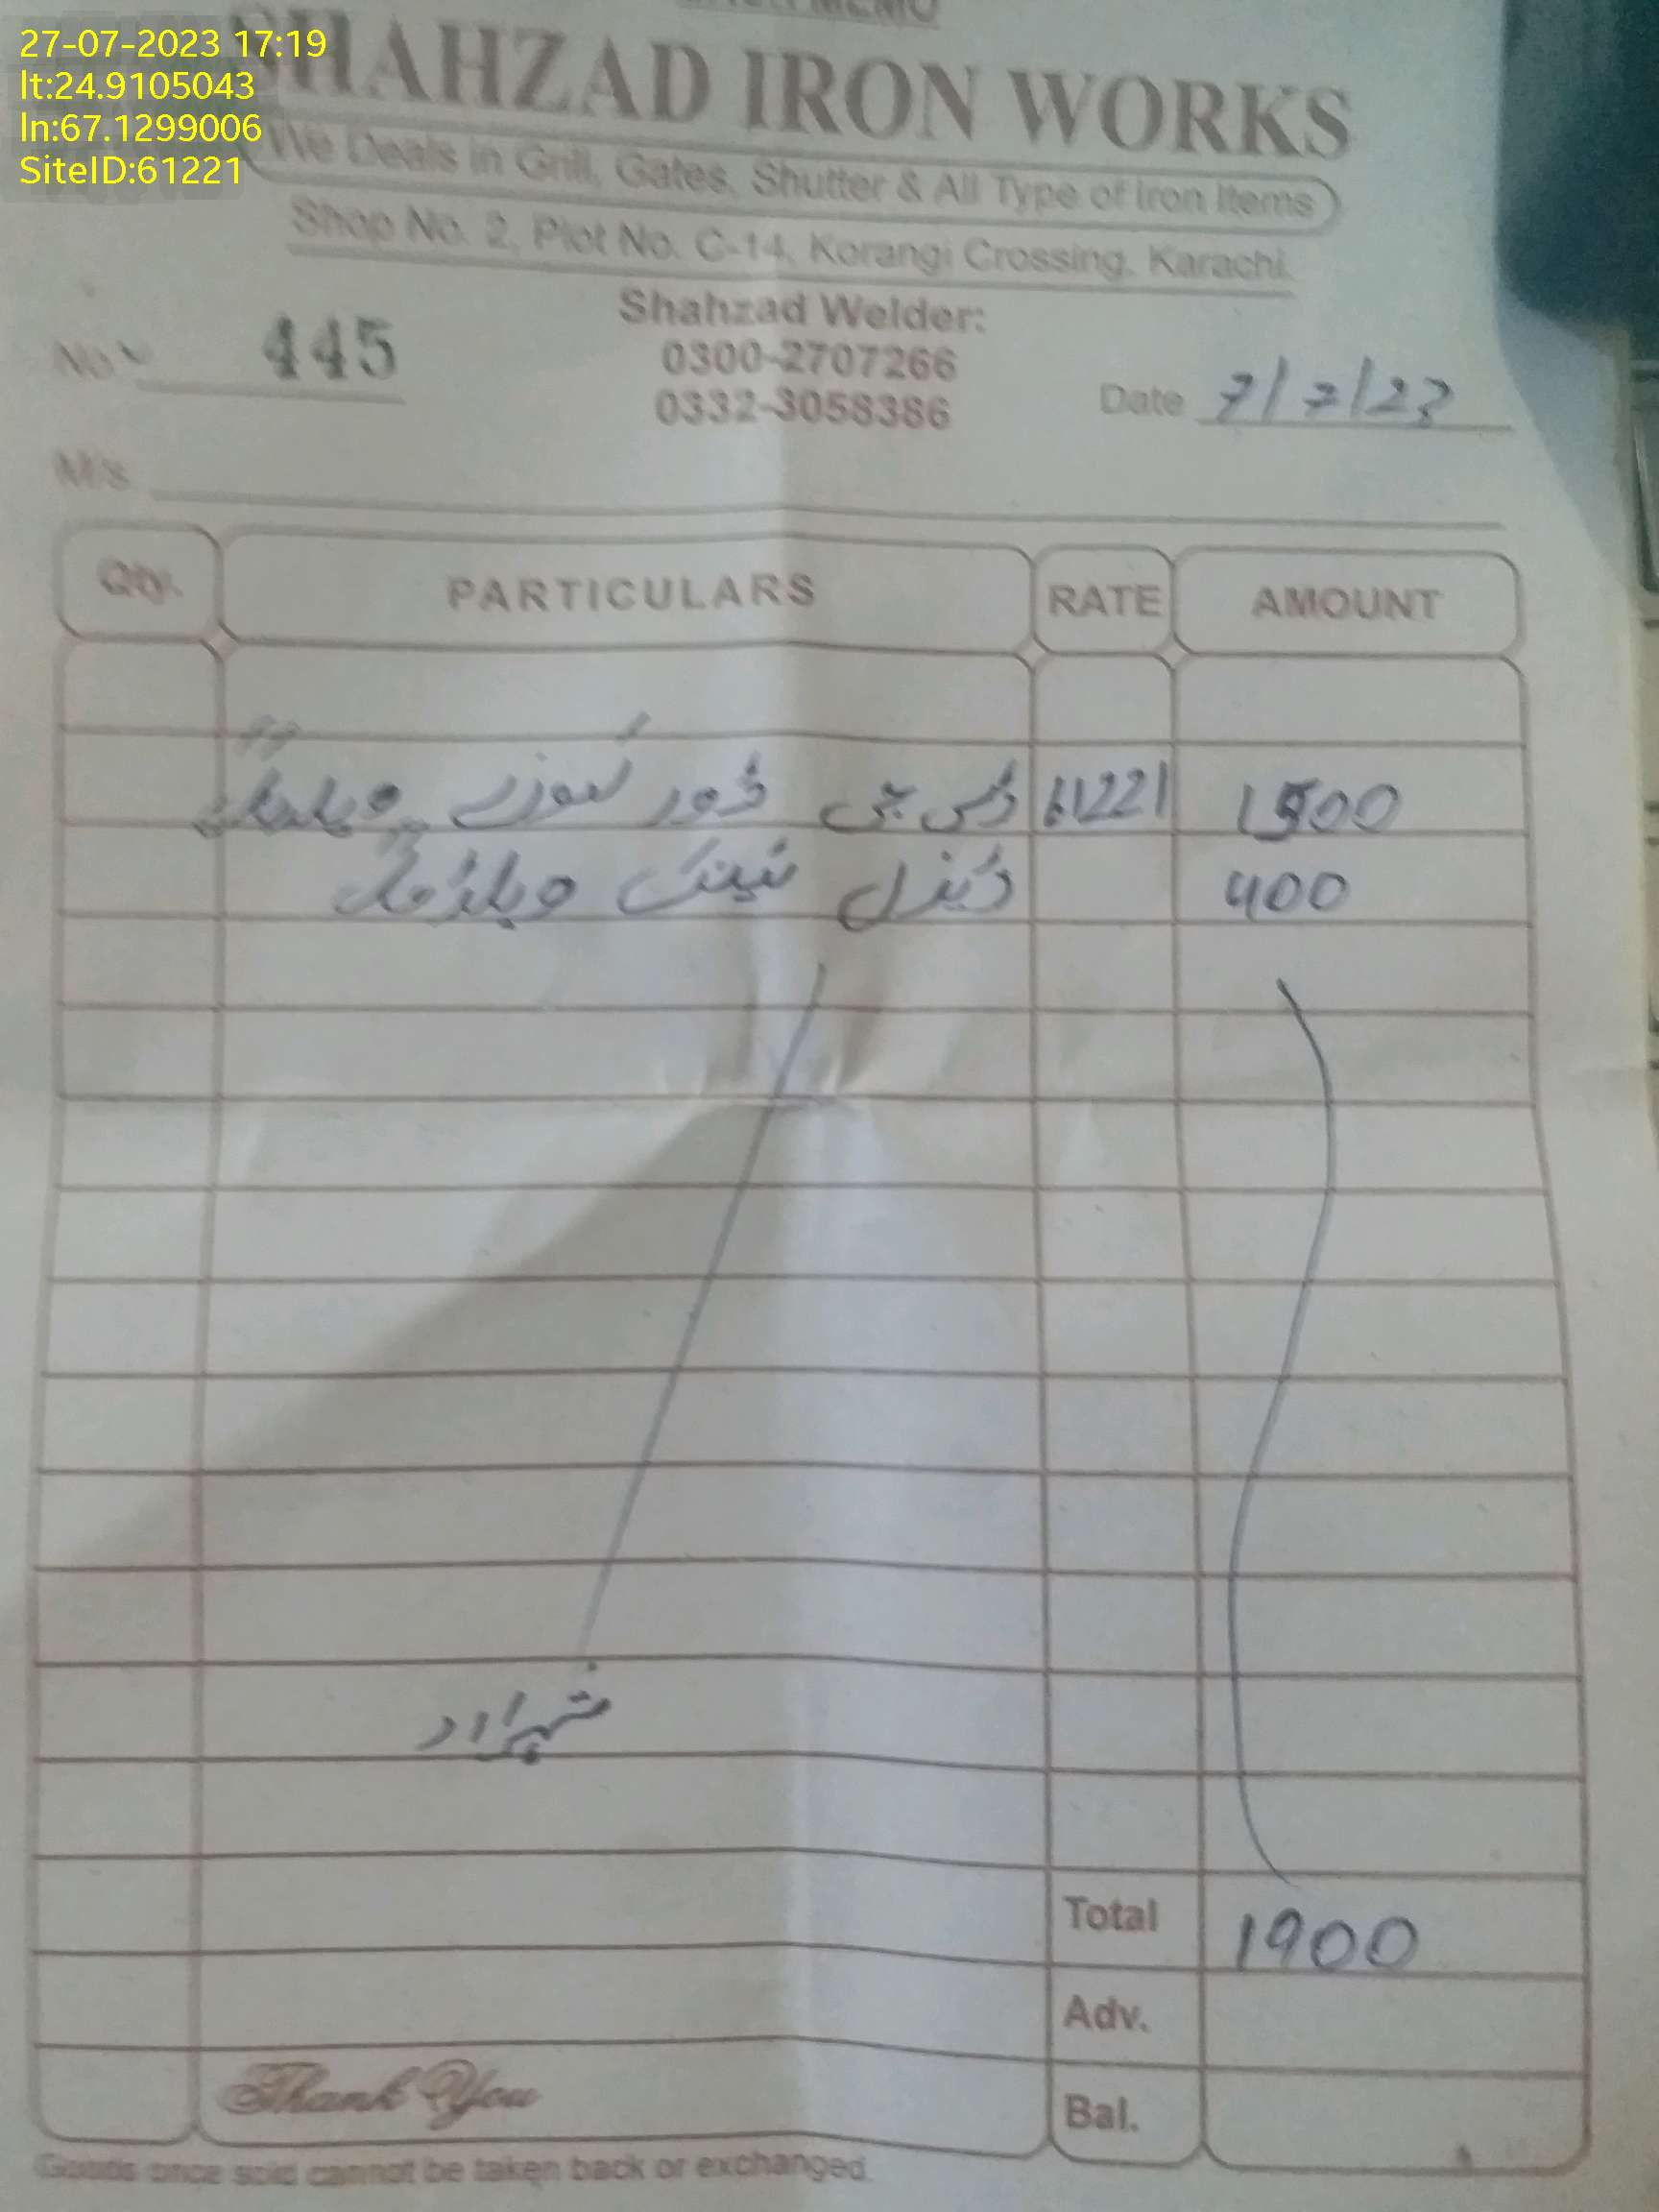 27-07-2023 17:19
lt:24.9105043
ln:67.1299006
SiteID:61221
MEMO
SHAHZAD IRON WORKS
We Deals in Grill, Gates, Shutter & All Type of Iron Items
Shop No. 2, Plot No. C-14, Korangi Crossing, Karachi.
Shahzad Welder:
No 445 0300-2707266
0332-3058386 Date 7/7/23
M/s
Qty. PARTICULARS RATE AMOUNT
ڈی جی ڈور ویلڈنگ 61221 1500
ڈیزل ٹینک ویلڈنگ 400
شہزاد
Total 1900
Adv.
Thank You Bal.
Goods once sold cannot be taken back or exchanged.